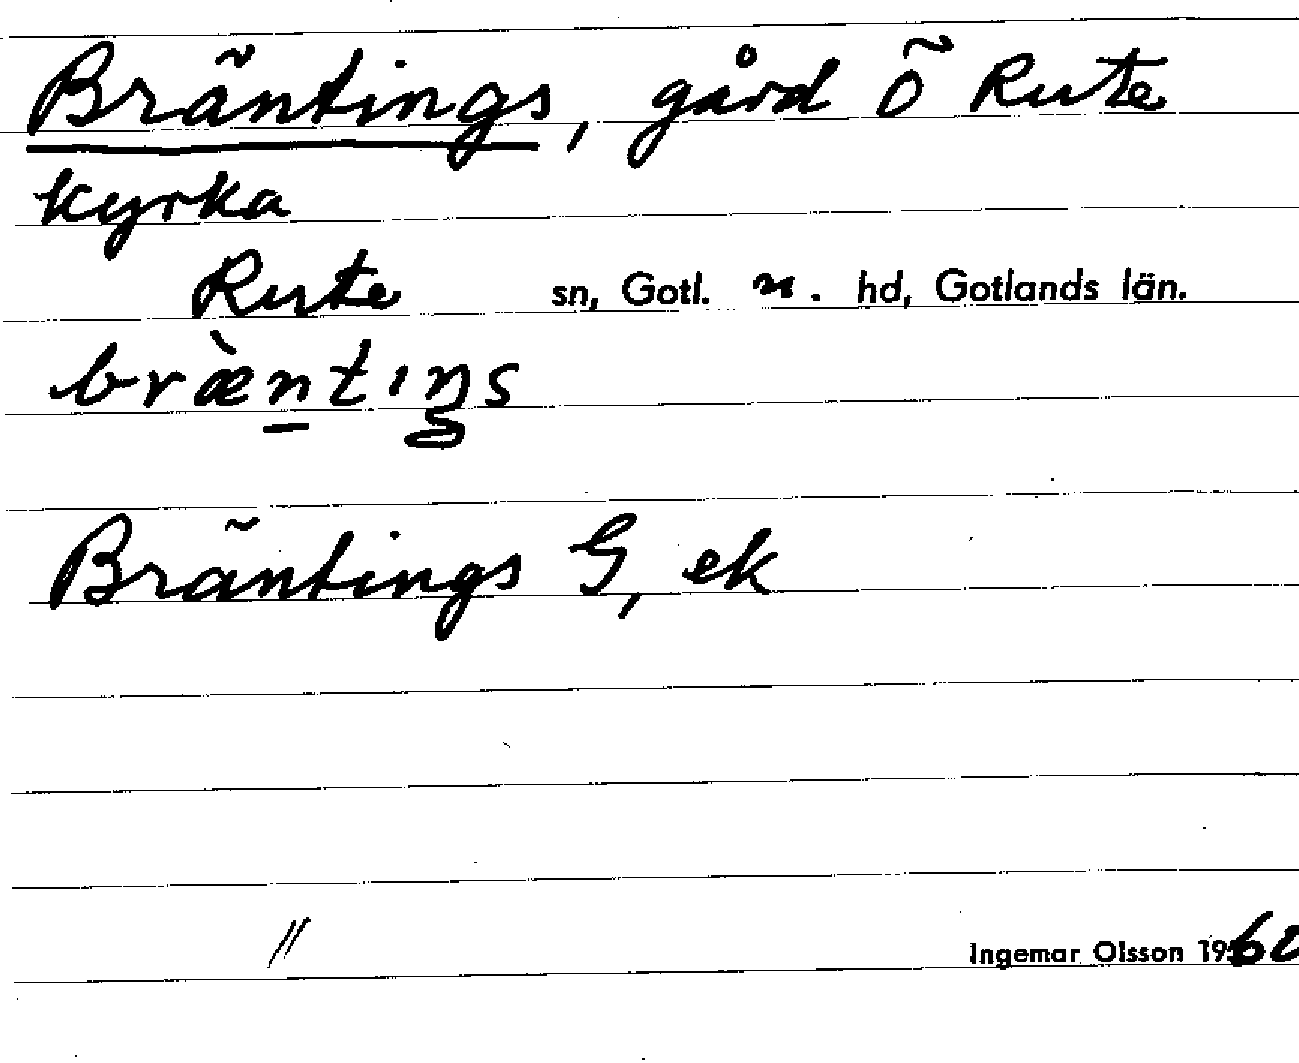 Bräntings, gård ö Rute
kyrka
Rute sn, Gotl. n. hd, Gotlands län.
bræ̀ntıŋs
Bräntings G, ek
Ingemar Olsson 1960